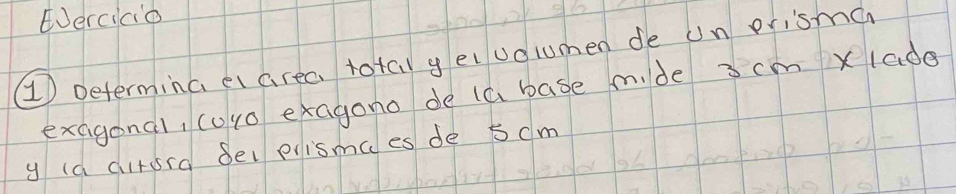 EJercicio
① Determina el area total y el volumen de un prisma
exagonal, cuyo exagono de la base mide 3 cm x lado
y la altura del prisma es de 5 cm